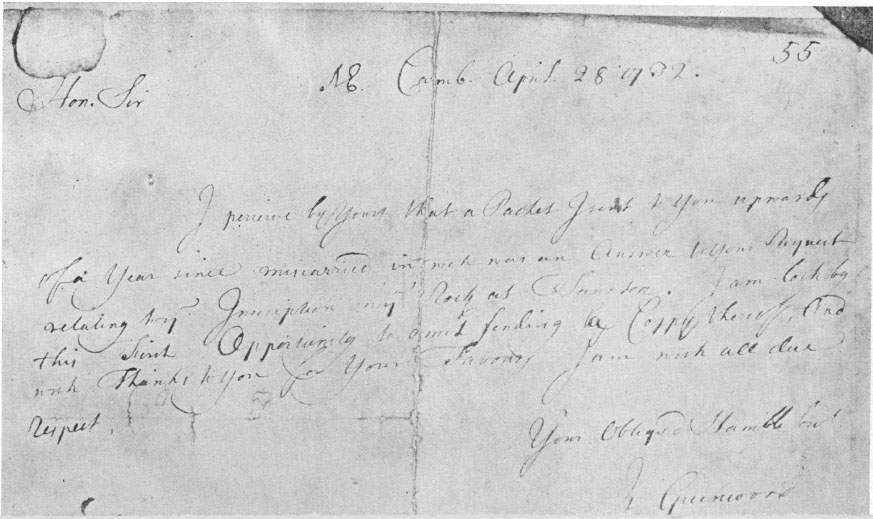 55
NE. Camb. April. 28 1732.
Hon. Sir
I perceive by Yours that a Packet I sent to You upwards
of a Year since miscarried in wch was an Answer to Your Request
relating to ye Inscription on ye Rock at Taunton. I am loth by
this First Opportunity to omit sending a Coppy thereof, And
with Thanks to You for Your Favours I am with all due
respect.
Your Obliged Humble Sert
I Greenwood